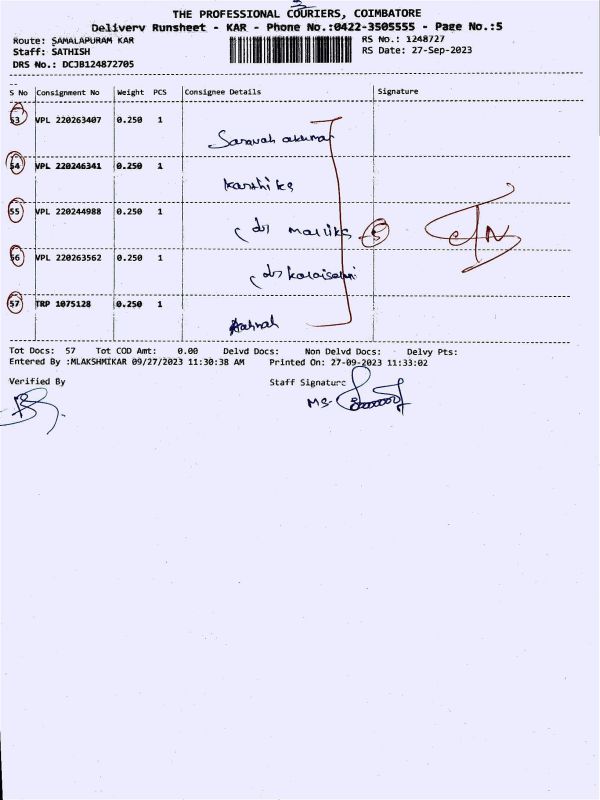 THE PROFESSIONAL COURIERS, COIMBATORE
Delivery Runsheet - KAR - Phone No.:0422-3505555 - Page No.:5
Route: SAMALAPURAM KAR
RS No.: 1248727
Staff: SATHISH
RS Date: 27-Sep-2023
DRS No.: DCJB124872705
S No Consignment No Weight PCS Consignee Details Signature
53 VPL 220263407 0.250 1
54 VPL 220246341 0.250 1
Karthika
55 VPL 220244988 0.250 1
5
56 VPL 220263562 0.250 1
57 TRP 1075128 0.250 1
Tot Docs: 57 Tot COD Amt: 0.00 Delvd Docs: Non Delvd Docs: Delvy Pts:
Entered By :MLAKSHMIKAR 09/27/2023 11:30:38 AM Printed On: 27-09-2023 11:33:02
Verified By
Staff Signature